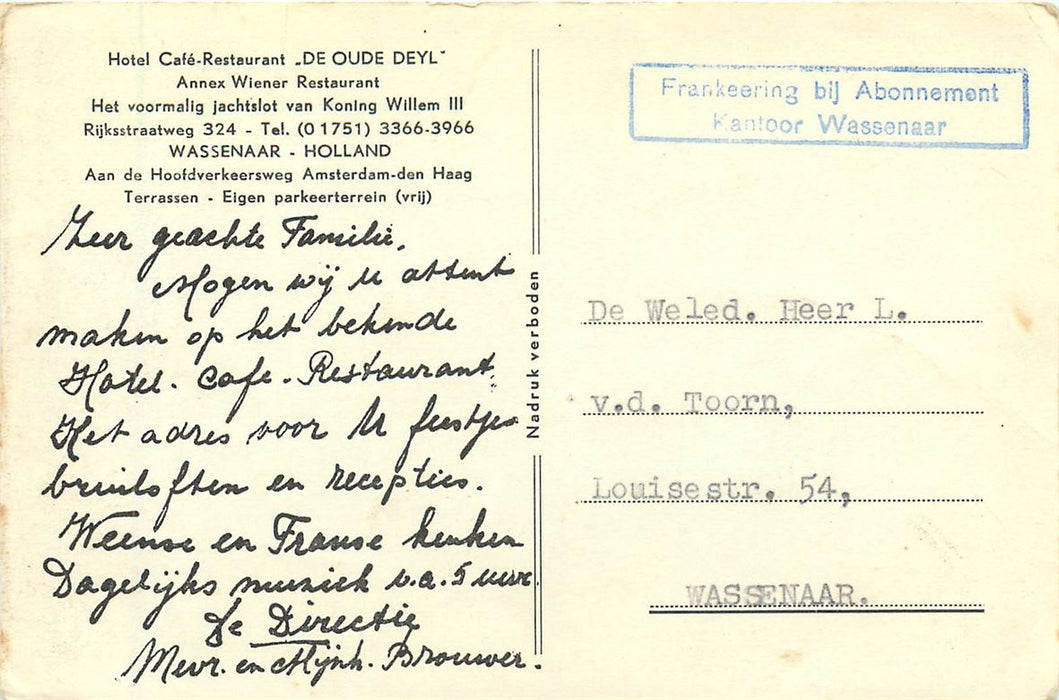 Hotel Café-Restaurant „DE OUDE DEYL"
Annex Wiener Restaurant
Het voormalig jachtslot van Koning Willem III
Rijksstraatweg 324 - Tel. (01751) 3366-3966
WASSENAAR - HOLLAND
Aan de Hoofdverkeersweg Amsterdam-den Haag
Terrassen - Eigen parkeerterrein (vrij)
Zeer geachte Familie,
Mogen wij u attent
maken op het bekende
Hotel. Cafe. Restaurant.
Het adres voor U feestjes
bruiloften en recepties.
Weense en Franse keuken
Dagelijks muziek v.a. 5 uur.
De Directie
Mevr. en Mijnh. Brouwer.
Nadruk verboden
Frankeering bij Abonnement
Kantoor Wassenaar
De Weled. Heer L.
v.d. Toorn,
Louisestr. 54,
WASSENAAR.